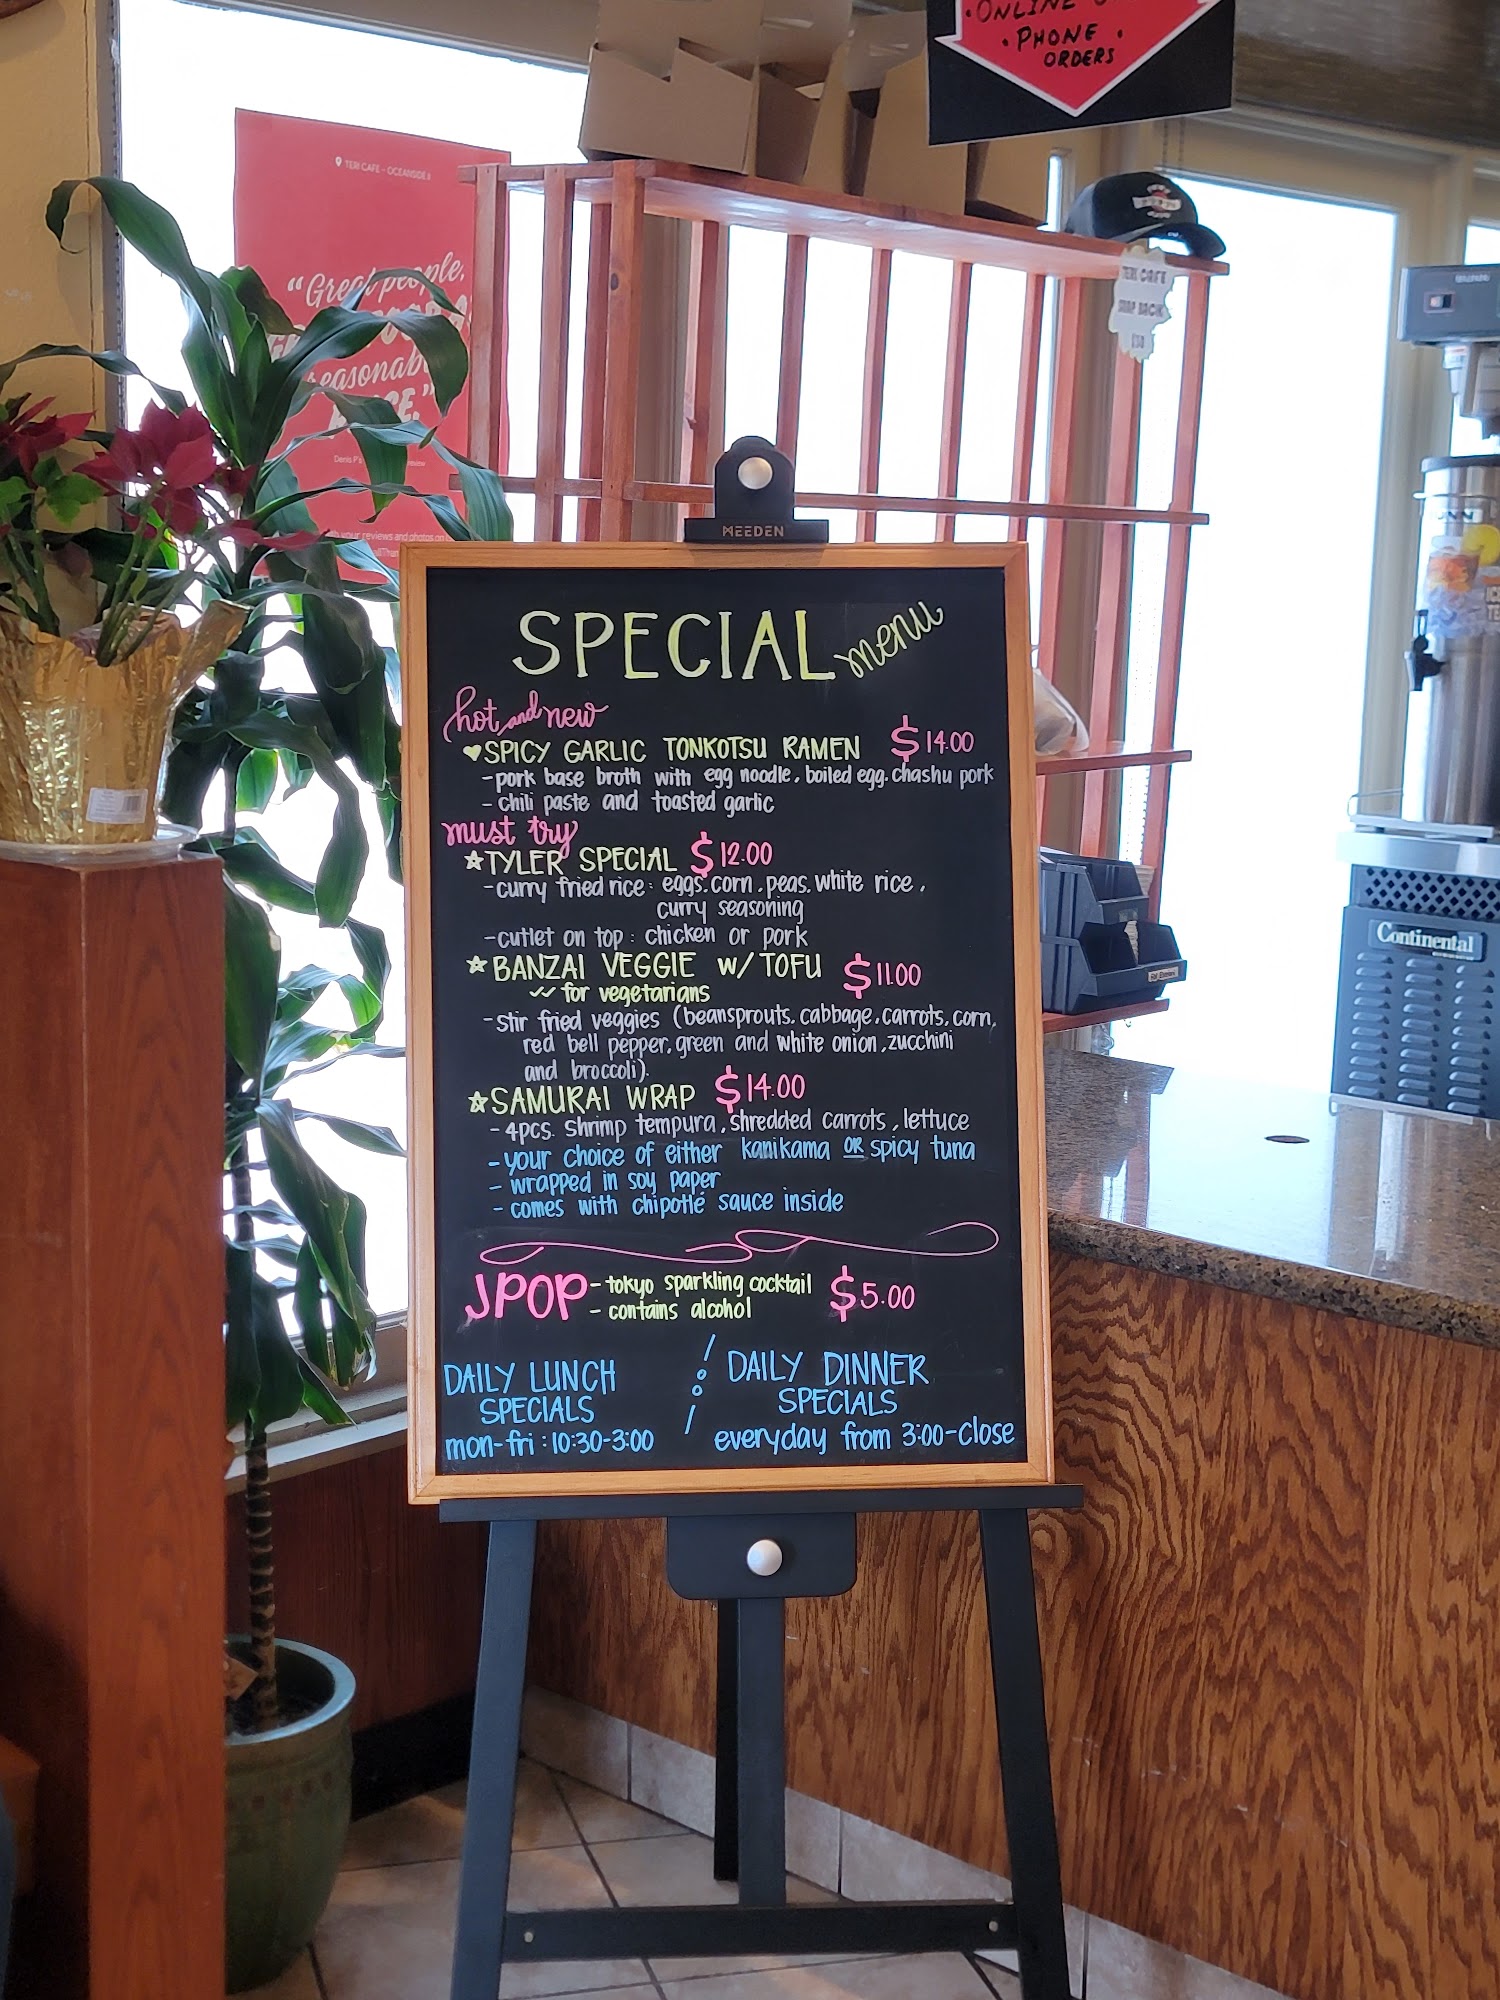 • ONLINE
• PHONE •
ORDERS
TERI CAFE - OCEANSIDE
"Great people,
reasonab
."
your reviews and photos on
TERI CAFE
SNAP BACK
MEEDEN
SPECIAL menu
hot and new
♥ SPICY GARLIC TONKOTSU RAMEN $14.00
- pork base broth with egg noodle, boiled egg, chashu pork
- chili paste and toasted garlic
must try
☆ TYLER SPECIAL $12.00
- curry fried rice: eggs, corn, peas, white rice,
curry seasoning
- cutlet on top: chicken or pork
☆ BANZAI VEGGIE w/ TOFU $11.00
✓✓ for vegetarians
- stir fried veggies (beansprouts, cabbage, carrots, corn,
red bell pepper, green and white onion, zucchini
and broccoli).
☆ SAMURAI WRAP $14.00
- 4pcs. shrimp tempura, shredded carrots, lettuce
- your choice of either kanikama OR spicy tuna
- wrapped in soy paper
- comes with chipotle sauce inside
JPOP - tokyo sparkling cocktail $5.00
- contains alcohol
DAILY LUNCH
SPECIALS
mon-fri: 10:30-3:00
DAILY DINNER
SPECIALS
everyday from 3:00-close
Continental